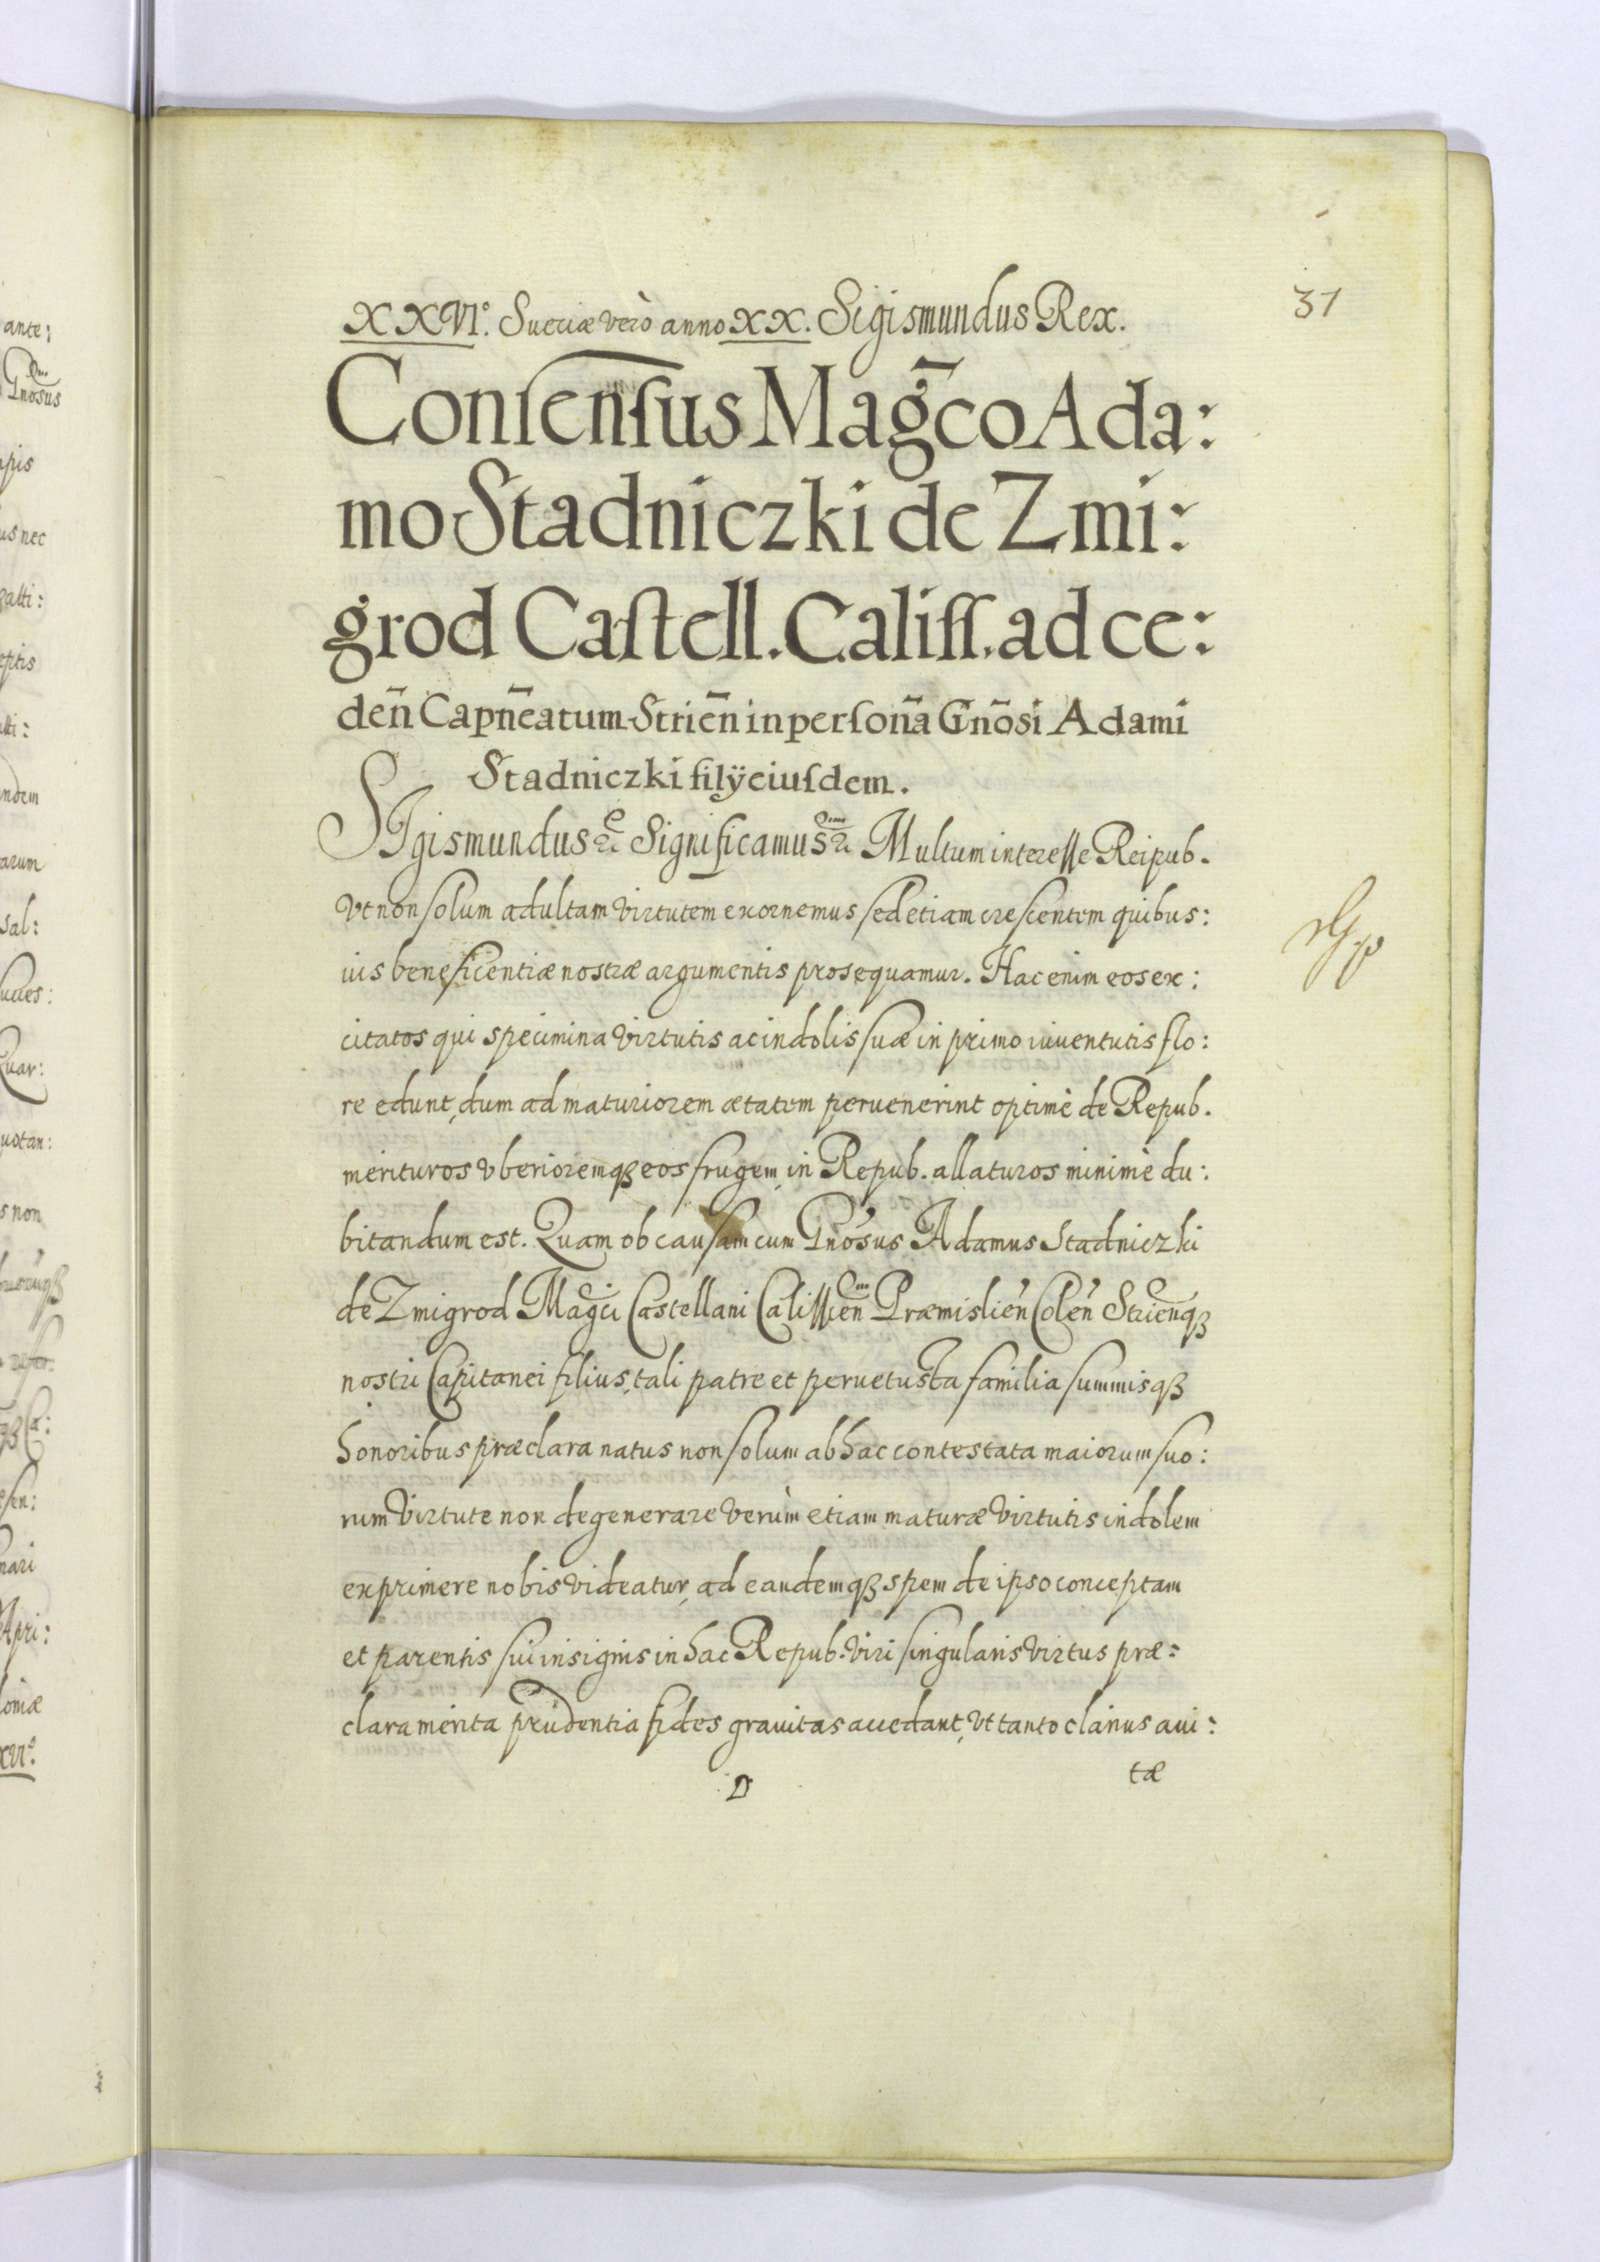 37
XXVI°. Sueciæ verò anno XX. Sigismundus Rex.
Conſenſus Mag̃co Ada:
mo Stadniczki de Zmi:
grod Caſtell. Caliſſ. ad ce:
deñ Capñeatum Strieñ in perſoña Gñosi Adami
Stadniczki filÿ eiuſdem.
SIgismundus &c Significamus &c Multum interesse Reipub.
vt non solum adultam virtutem exornemus sed etiam crescentem quibus:
uis beneficentiæ nostræ argumentis prosequamur. Hac enim eos ex:
citatos qui specimina virtutis ac indolis suæ in primo iuuentutis flo:
re edunt, dum ad maturiorem ætatem peruenerint optimè de Repub.
merituros vberioremqȝ eos frugem in Repub. allaturos minimè du:
bitandum est. Quam ob causam cum Gñosus Adamus Stadniczki
de Zmigrod Magci Castellani Calissieñ Præmislieñ Coleñ Strieñqȝ
nostri Capitanei filius, tali patre et peruetusta familia summisqȝ
honoribus præclara natus non solum ab hac contestata maiorum suo:
rum virtute non degenerare verùm etiam maturæ virtutis indolem
exprimere nobis videatur, ad eandemqȝ spem de ipso conceptam
et parentis sui insignis in hac Repub. viri singularis virtus præ:
clara merita prudentia fides grauitas accedant, vt tanto clarius aui:
D
tæ